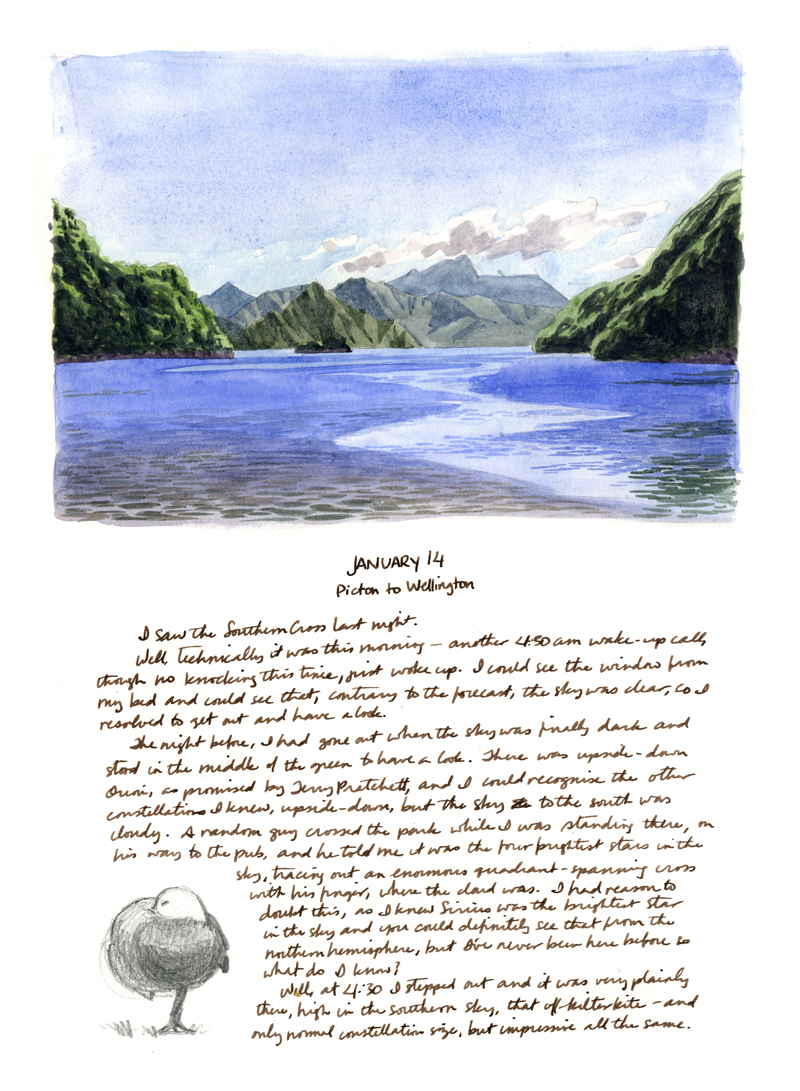 JANUARY 14
Picton to Wellington
I saw the Southern Cross last night.
Well, technically it was this morning – another 4:30 am wake-up call,
though no knocking this time, just woke up. I could see the window from
my bed and could see that, contrary to the forecast, the sky was clear, so I
resolved to get out and have a look.
The night before, I had gone out when the sky was finally dark and
stood in the middle of the green to have a look. There was upside-down
Orion, as promised by Terry Pratchett, and I could recognise the other
constellations I knew, upside-down, but the sky to the south was
cloudy. A random guy crossed the park while I was standing there, on
his way to the pub, and he told me it was the four brightest stars in the
sky, tracing out an enormous quadrant-spanning cross
with his finger, where the cloud was. I had reason to
doubt this, as I knew Sirius was the brightest star
in the sky and you could definitely see that from the
northern hemisphere, but I've never been here before so
what do I know?
Well, at 4:30 I stepped out and it was very plainly
there, high in the southern sky, that off-kilter kite – and
only normal constellation size, but impressive all the same.